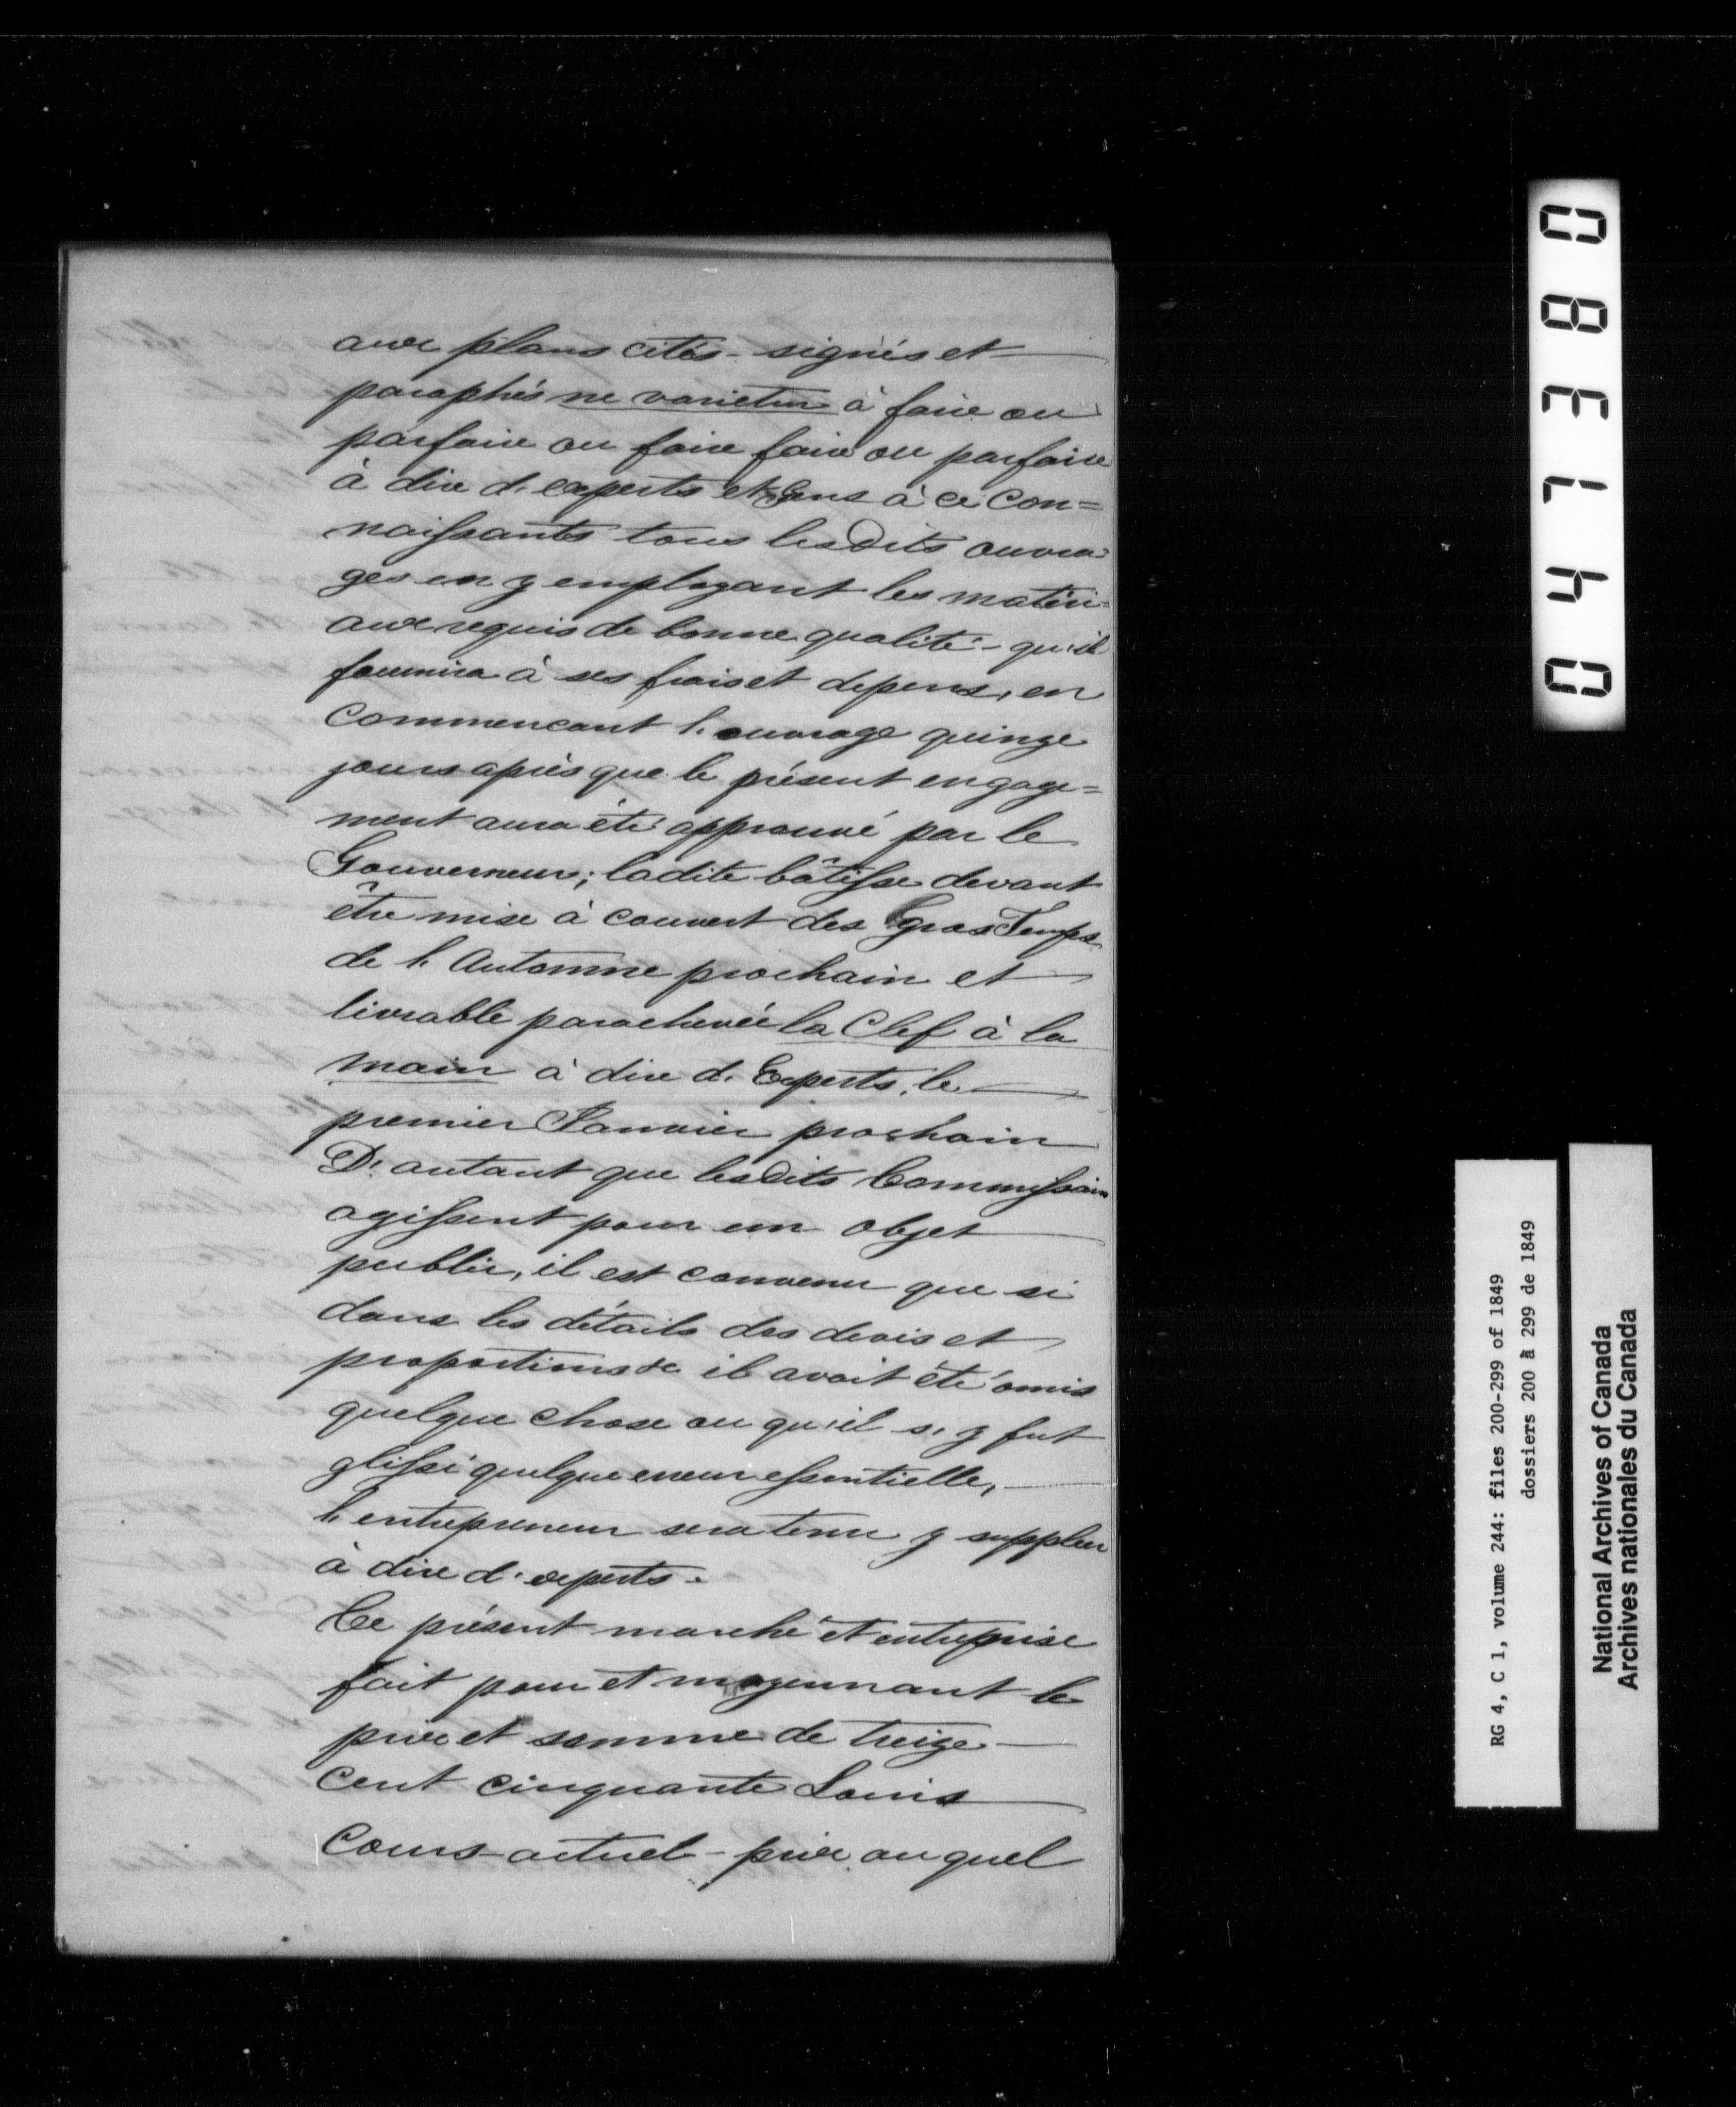 aux plans cités - signés et
paraphés ne varietur à faire ou
parfaire ou faire faire ou parfaire
à dire d'experts et Gens à ce con=
naissants tous lesdits ouvra
ges en y employant les matéri=
aux requis de bonne qualité - qu'il
fournira à ses frais et depens, en
commencant l'ouvrage quinze
jours après que le présent engage=
ment aura été approuvé par le
Gouverneur; ladite bâtisse devant
être mise à couvert des gros Temps
de l'Automne prochain et
livrable parachevée la Clef à la
main à dire d'Experts, le
premier Janvier prochain
D'autant que lesdits Commissaires
agissent pour un objet
public, il est convenu que si
dans les détails des devis et
proportions &c il avait été omis
quelque chose ou qu'il s'y fut
glissé quelque erreur essentielle,
l'entrepreneur sera tenu y suppléer
à dire d'experts.
Ce présent marché et entreprise
fait pour et moyennant le
prix et somme de treize
cent cinquante Louis
Cours actuel - prix auquel
047380
RG 4, C 1, volume 244: files 200-299 of 1849
dossiers 200 à 299 de 1849
National Archives of Canada
Archives nationales du Canada